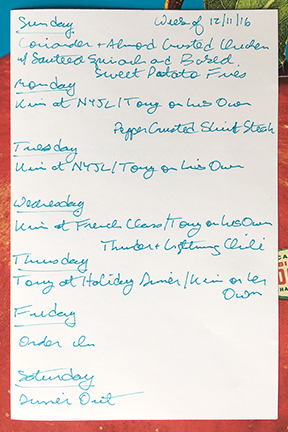 Sunday Week of 12/11/16
Coriander + Almond Crusted Chicken
w/ Sauteed Spinach and Baked
Sweet Potato Fries
Monday
Kim at NYJL/Tony on his Own
Pepper Crusted Skirt Steak
Tuesday
Kim at NYJL/Tony on his Own
Wednesday
Kim at French Class/Tony on his Own
Thunder + Lightning Chili
Thursday
Tony at Holiday Dinner/Kim on her
Own
Friday
Order In
Saturday
Dinner Out